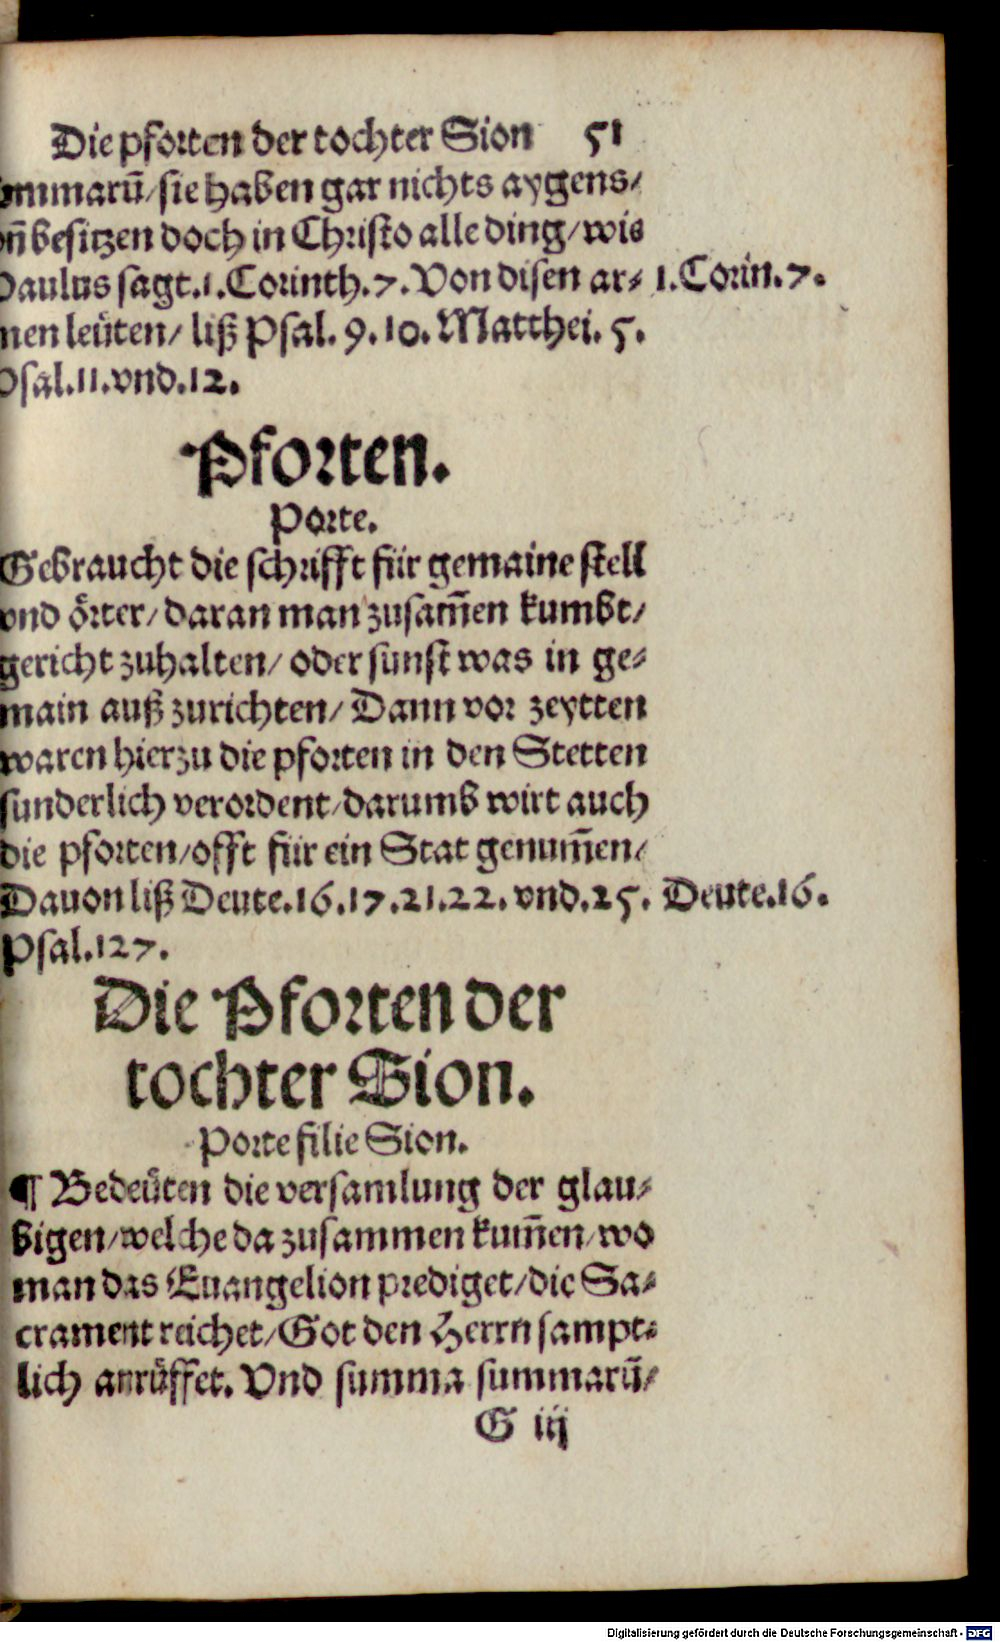 Die pforten der tochter Sion 51
summarū/sie haben gar nichts aygens/
vñ besitzen doch in Christo alle ding/wie
Paulus sagt.1.Corinth.7.Von disen ar⸗ 1.Corin.7.
men leüten/ liß Psal. 9.10. Matthei. 5.
Psal.11.vnd.12.
Pforten.
Porte.
Gebraucht die schrifft für gemaine stell
vnd örter/daran man zusam̄en kumbt/
gericht zuhalten/ oder sunst was in ge⸗
main auß zurichten/ Dann vor zeytten
waren hierzu die pforten in den Stetten
sunderlich verordent/darumb wirt auch
die pforten/offt für ein Stat genum̄en/
Dauon liß Deute.16.17.21.22. vnd.25. Deute.16.
Psal.127.
Die Pforten der
tochter Sion.
Porte filie Sion.
¶ Bedeüten die versamlung der glau⸗
bigen/welche da zusammen kum̄en/wo
man das Euangelion prediget/die Sa⸗
crament reichet/Got den Herrn sampt⸗
lich anrüffet. Vnd summa summarū/
G iij
Digitalisierung gefördert durch die Deutsche Forschungsgemeinschaft - DFG